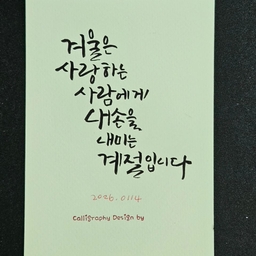 겨울은
사랑하는
사람에게
내손을
내미는
계절입니다
2026.0114
Calligraphy Design by